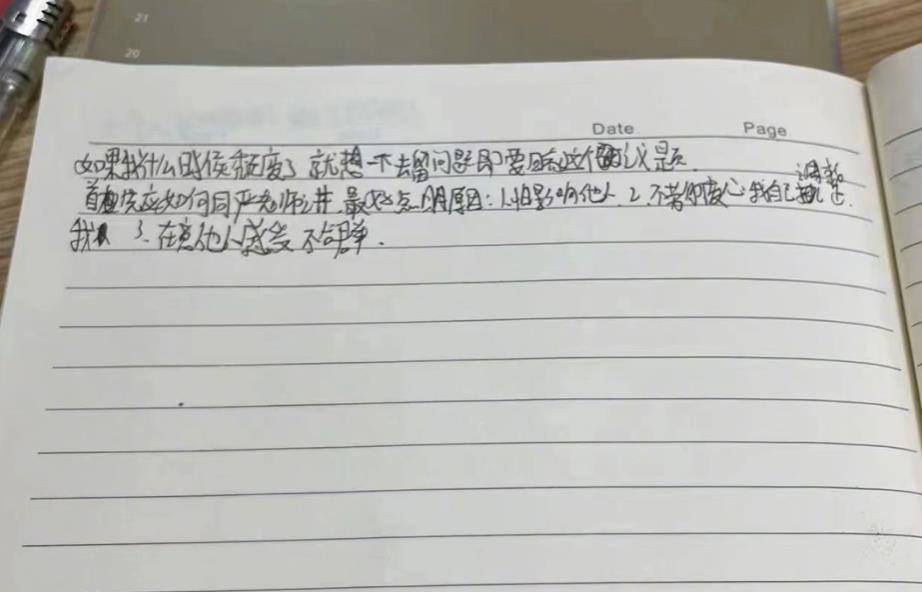 21
20
Date Page
如果我什么时候颓废了 就想一下去留问题 即要回家这个议题
首先应如何同严老师讲 最好点明原因：1.怕影响他人 2.不劳师费心 我自己调整
我 3.在意他人感受 不简单.